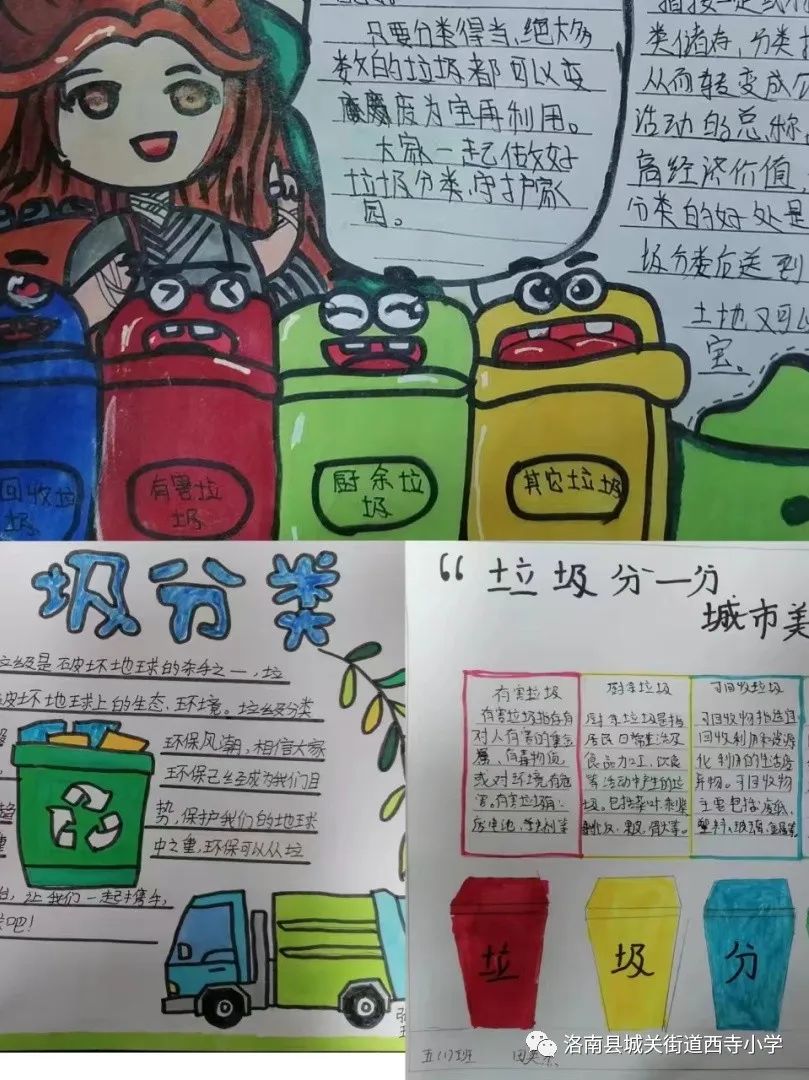 只要分类得当,绝大多
数的垃圾都可以变
废为宝再利用。
大家一起做好
垃圾分类,守护家
园。
类储存,分类
从而转变成公
活动的总称
高经济价值
分类的好处是
圾分类后送到
土地又可以
宝。
回收垃
圾
有害垃
圾
厨余垃
圾
其它垃圾
圾分类
垃圾是破坏地球的杀手之一,垃
破坏地球上的生态、环境。垃圾分类
环保风潮,相信大家
环保已经成为我们目
势,保护我们的地球
中之重,环保可以从垃
让我们一起携手,
吧!
“垃圾分一分
城市美
有害垃圾
有害垃圾指存有
对人有害的重金
属、有毒物质
或对环境有危
害。有害垃圾有:
厨余垃圾
厨余垃圾是指
居民日常生活及
食品加工、饮食
等活动中产生的垃
圾。包括菜叶、剩菜
可回收垃圾
可回收物指适宜
回收利用和资源
化利用的生活废
弃物。可回收物
主要包括:废纸、
垃
圾
分
五(1)班
洛南县城关街道西寺小学